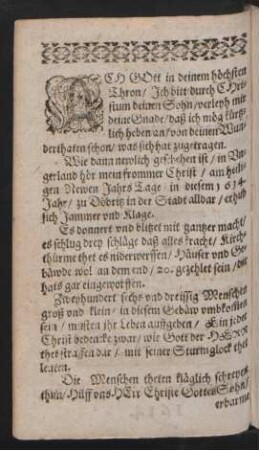 ACH GOtt in deinem höchsten
Thron/ Ich bitt durch CHri-
stum deinen Sohn/ verleyh mir
deine Gnade/ daß ich mög kürtz-
lich heben an/ von deinen Wun-
derthaten schon/ was sich hat zugetragen.
Wie dann newlich geschehen ist/ in Un-
gerland hör mein frommer Christ/ am heili-
gen Newen Jahrs Tage/ in diesem 1614.
Jahr/ zu Döbritz in der Stadt alldar/ erhub
sich Jammer und Klage.
Es donnert und blitzet mit gantzer macht/
es schlug drey schläge daß alles kracht/ Kirch-
thürme thet es niderwerffen/ Häuser und Ge-
bäwde wol an dem end/ 20. gezehlet sein/ die
hats gar eingeworffen.
Zweyhundert sechs und dreissig Menschen
groß und klein/ in diesem Gebäw umbkommen
sein/ musten ihr Leben auffgeben/ Ein jeder
Christ bedencke zwar/ wie Gott der HERR
thet straffen dar/ mit seiner Sturmglock thet
leuten.
Die Menschen theten kläglich schreyen
thun/ Hülff uns HErr Christe Gottes Sohn/
erbarme
1614